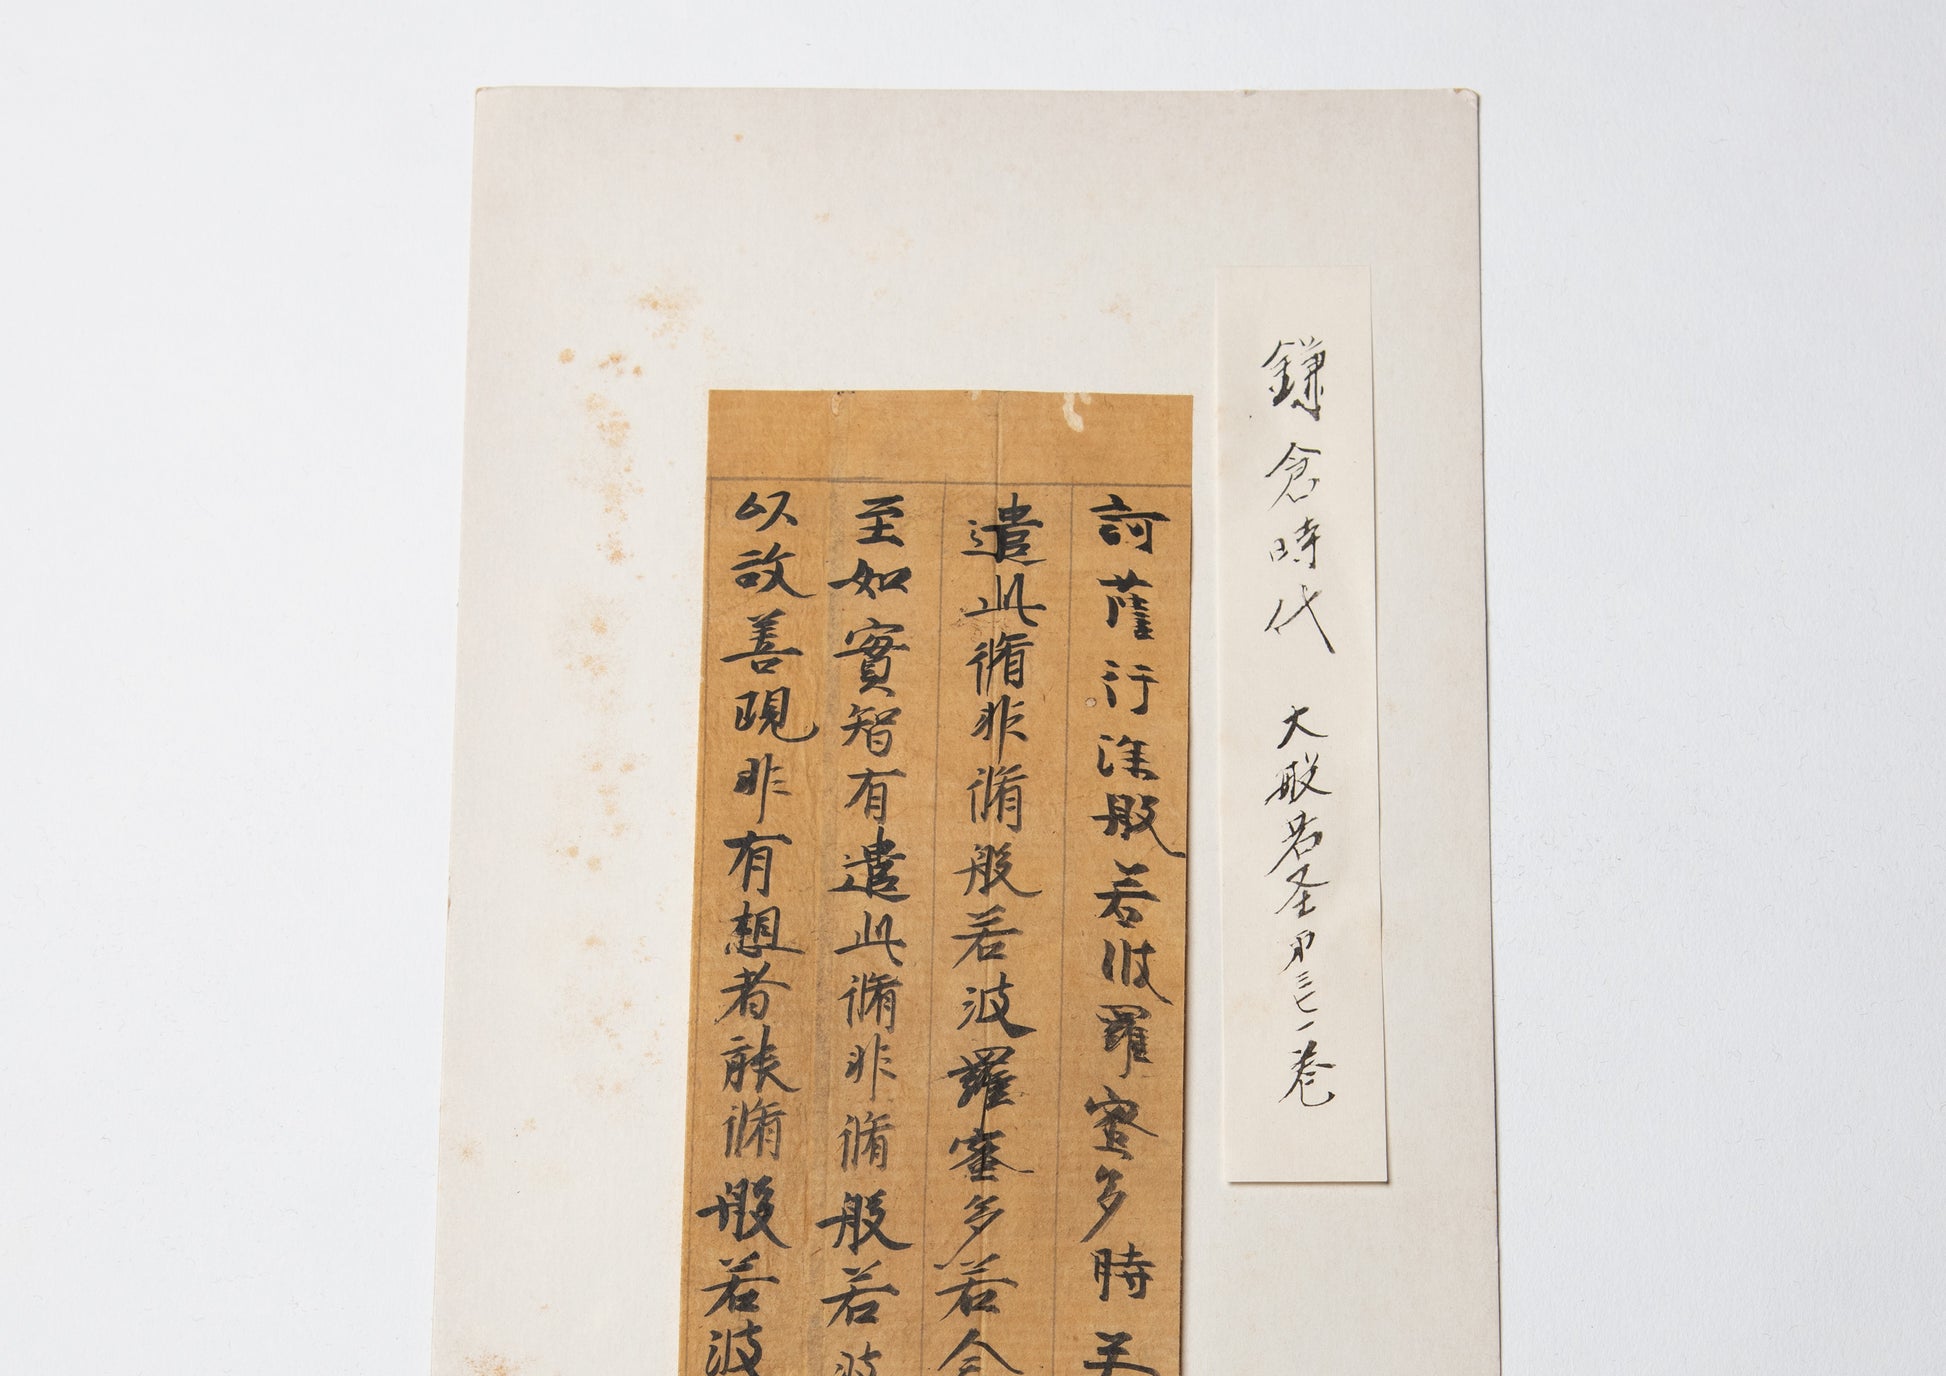 鎌倉時代 大般若圣㐧三七一巻
訶薩行深般若波羅蜜多時
遣此脩非脩般若波羅蜜多若令
至如實智有遣此脩非脩般若波
以故善現非有想者能脩般若波